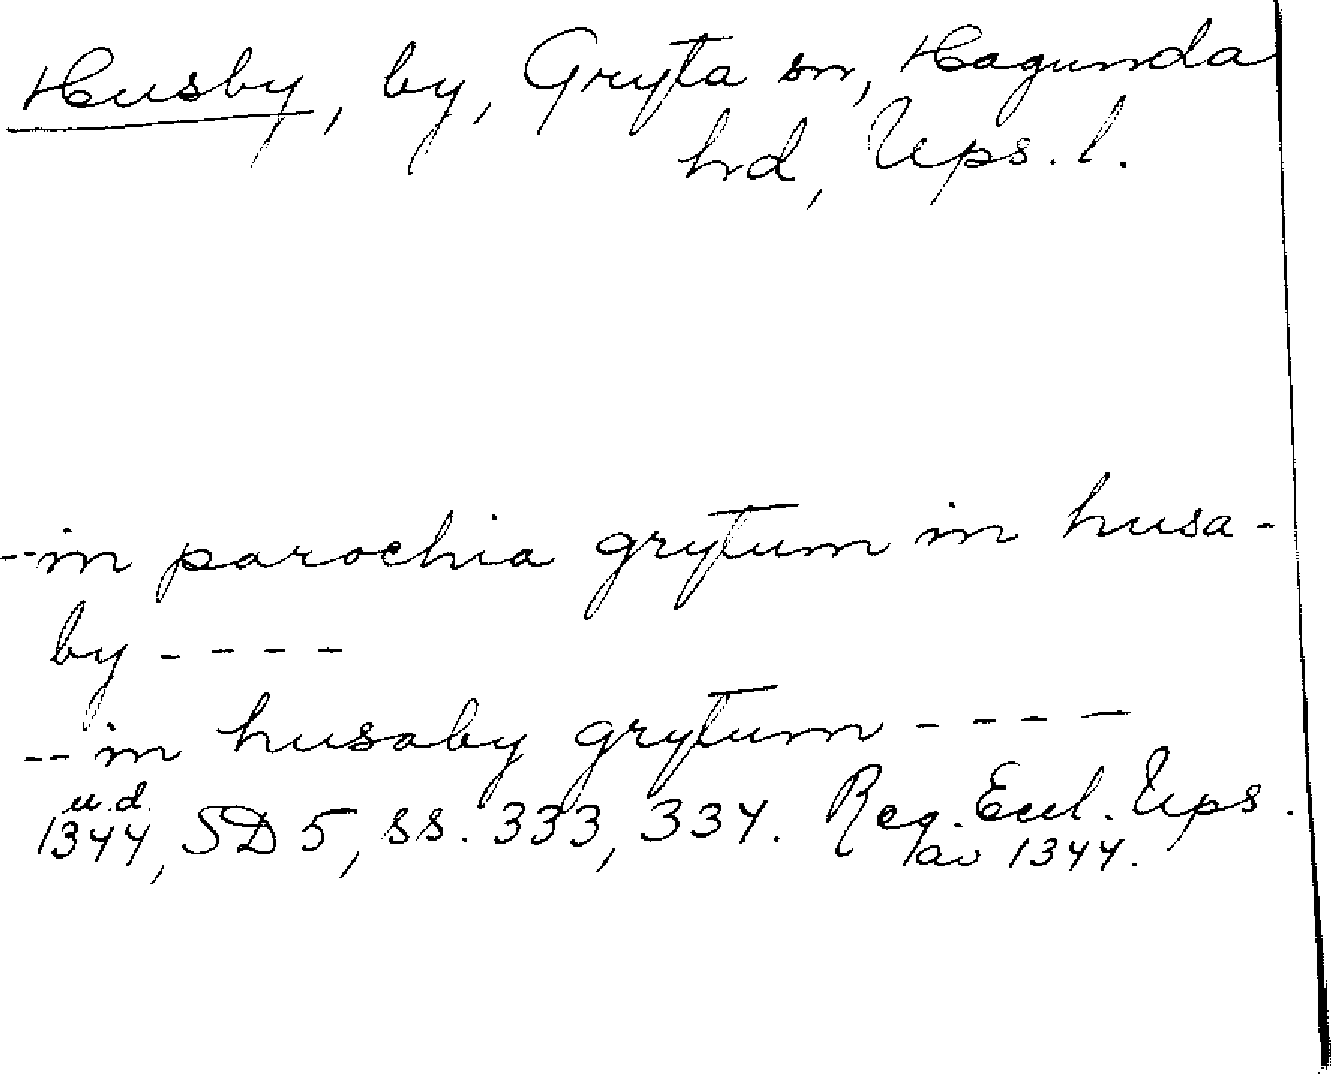 Husby, by, Gryta sn, Hagunda
hd, Ups. l.
--in parochia grytum in husa-
by ----
--in husaby grytum ----
u.d.
1344, SD 5, ss. 333, 334. Reg. Eccl. Ups.
av 1344.